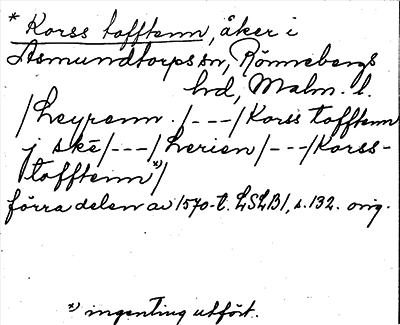 * Korss tofftenn, åker i
Asmundtorps sn, Rönnebergs
hd, Malm. l.
/Leyrenn./---/Korss tofftenn
j ske/---/Lerien/---/Korss-
tofftenn*)/
förra delen av 1570-t. LSLB1, s. 132. orig.
*) ingenting utfört.